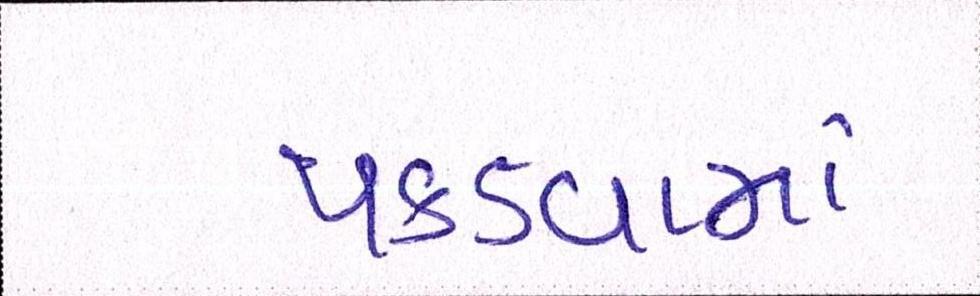 પકડવામાં